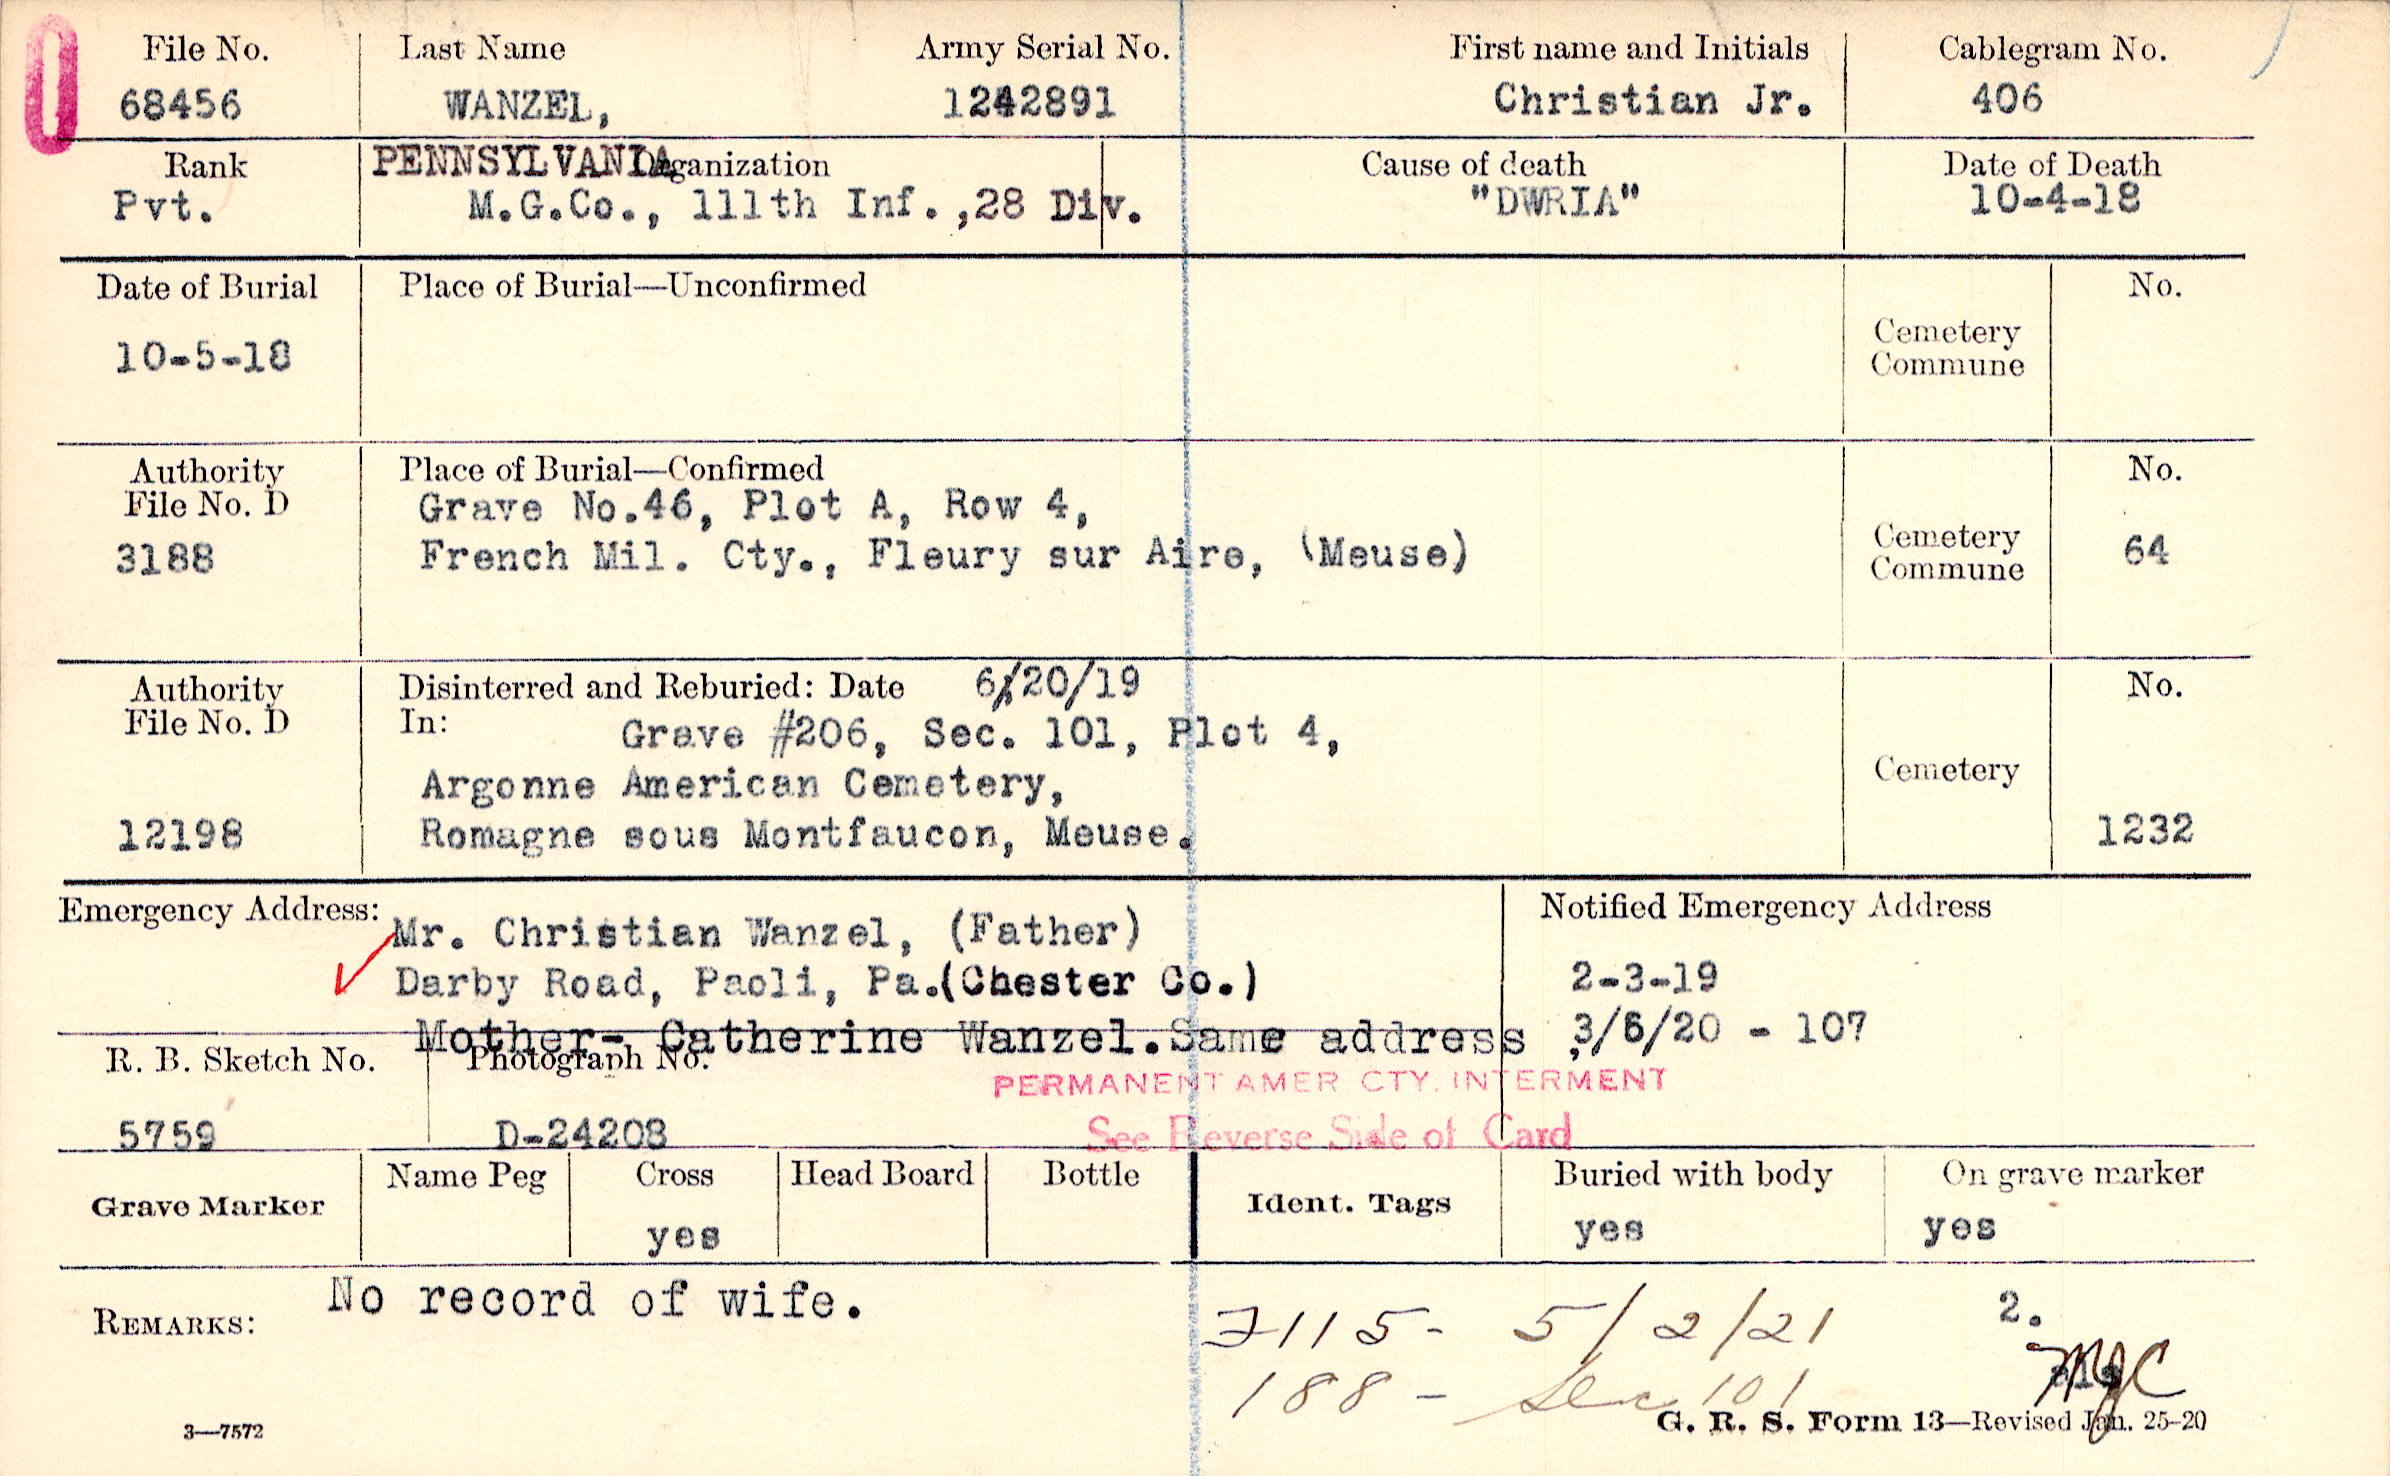 File No. Last Name Army Serial No. First name and Initials Cablegram No.
68456 WANZEL, 1242891 Christian Jr. 406
Rank PENNSYLVANIA Organization Cause of death Date of Death
Pvt. M.G.Co., 111th Inf.,28 Div. "DWRIA" 10-4-18
Date of Burial Place of Burial—Unconfirmed No.
10-5-18 Cemetery
Commune
Authority Place of Burial—Confirmed No.
File No. D Grave No.46, Plot A, Row 4,
3188 French Mil. Cty., Fleury sur Aire, (Meuse) Cemetery 64
Commune
Authority Disinterred and Reburied: Date 6/20/19 No.
File No. D In: Grave #206, Sec. 101, Plot 4,
Argonne American Cemetery, Cemetery
12198 Romagne sous Montfaucon, Meuse. 1232
Emergency Address: Mr. Christian Wanzel, (Father) Notified Emergency Address
Darby Road, Paoli, Pa.(Chester Co.) 2-3-19
Mother- Catherine Wanzel.Same address 3/6/20 - 107
R. B. Sketch No. Photograph No.
PERMANENT AMER CTY. INTERMENT
5759 D-24208 See Reverse Side of Card
Grave Marker Name Peg Cross Head Board Bottle Ident. Tags Buried with body On grave marker
yes yes yes
REMARKS: No record of wife. 2.
7115- 5/2/21
188- Sec 101 MJC
3—7572 G. R. S. Form 13—Revised Jan. 25-20